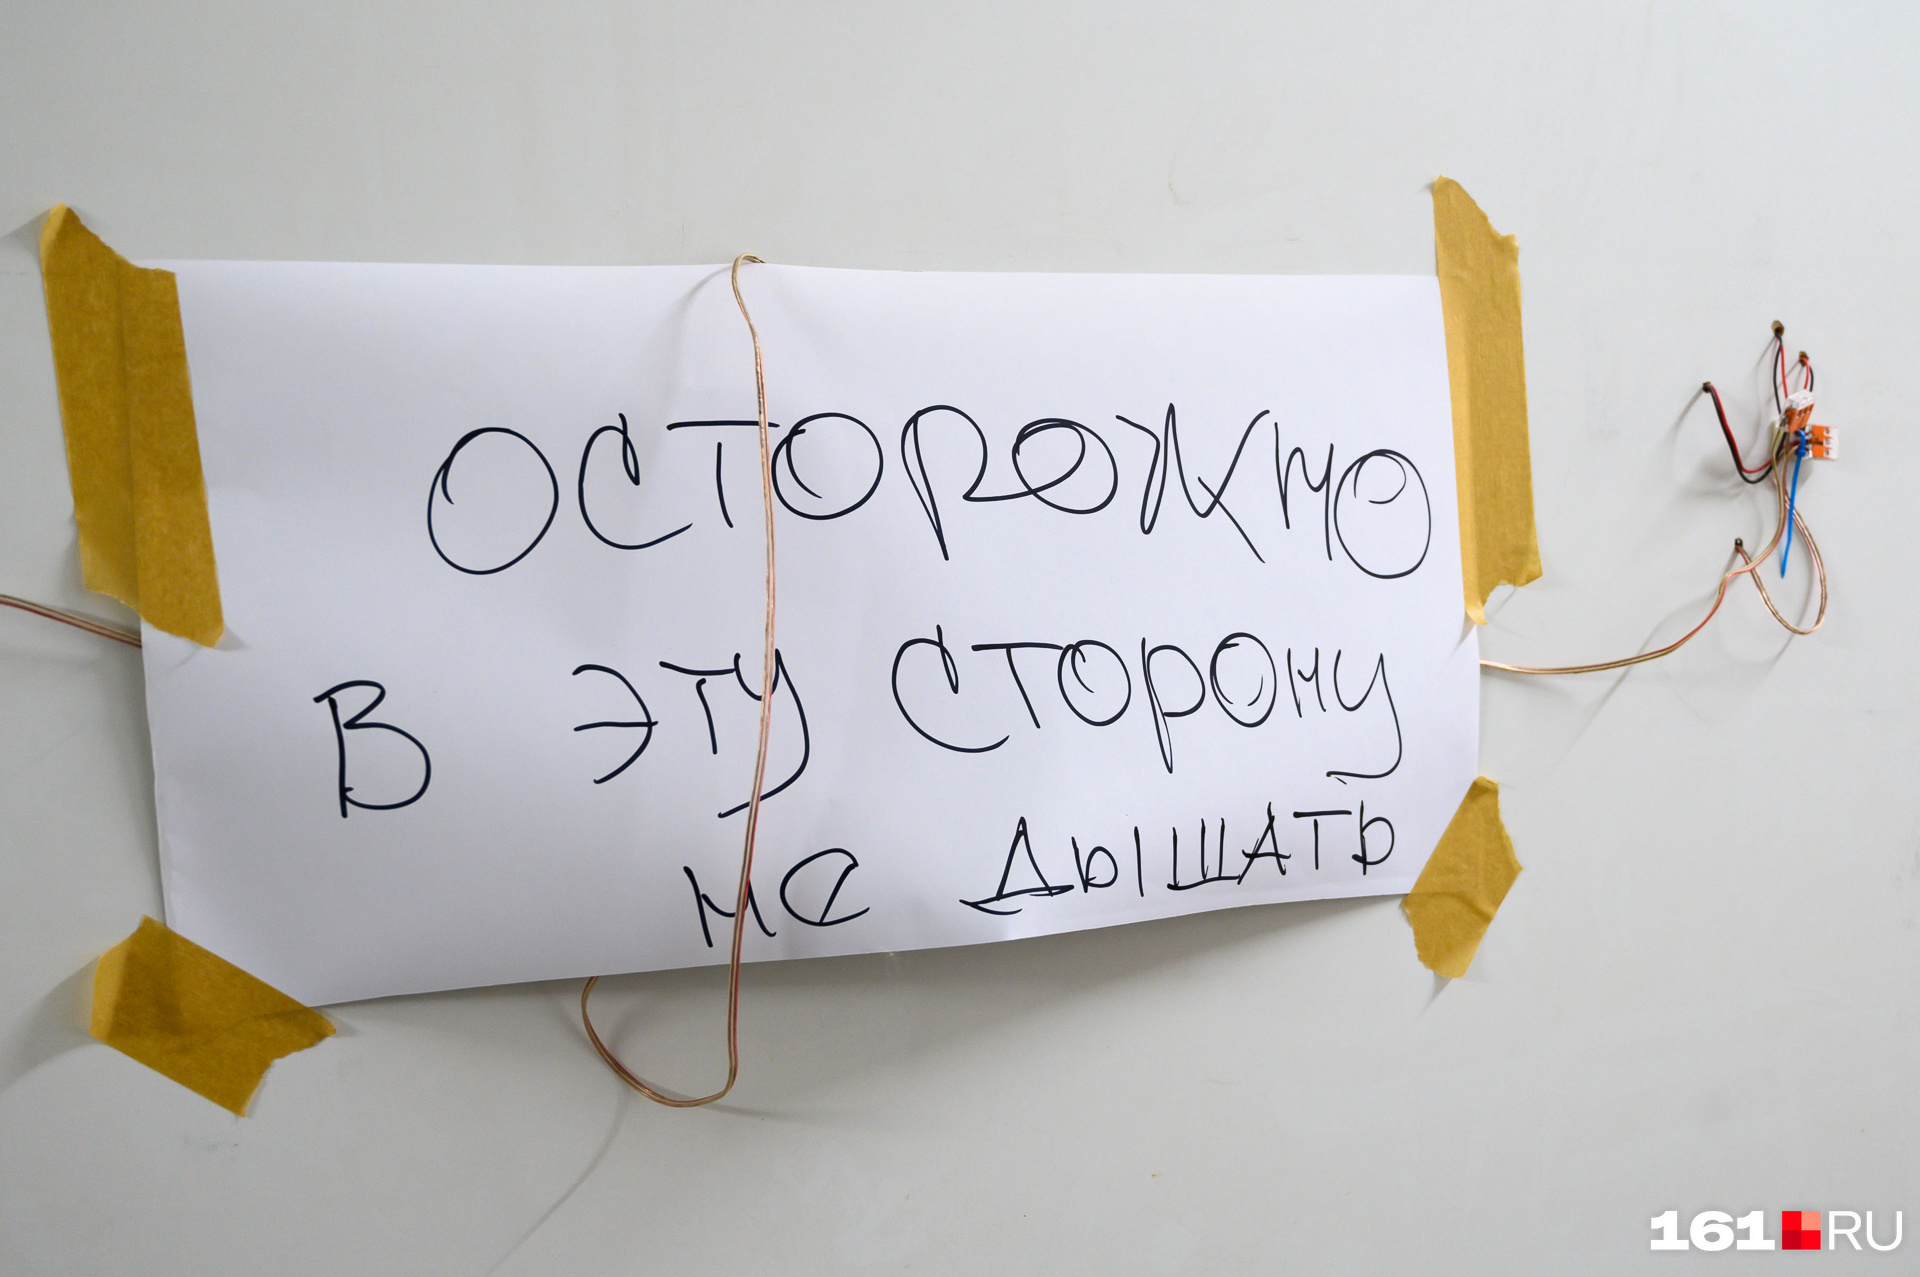 ОСТОРОЖНО
В ЭТУ СТОРОНУ
НЕ ДЫШАТЬ
161.RU